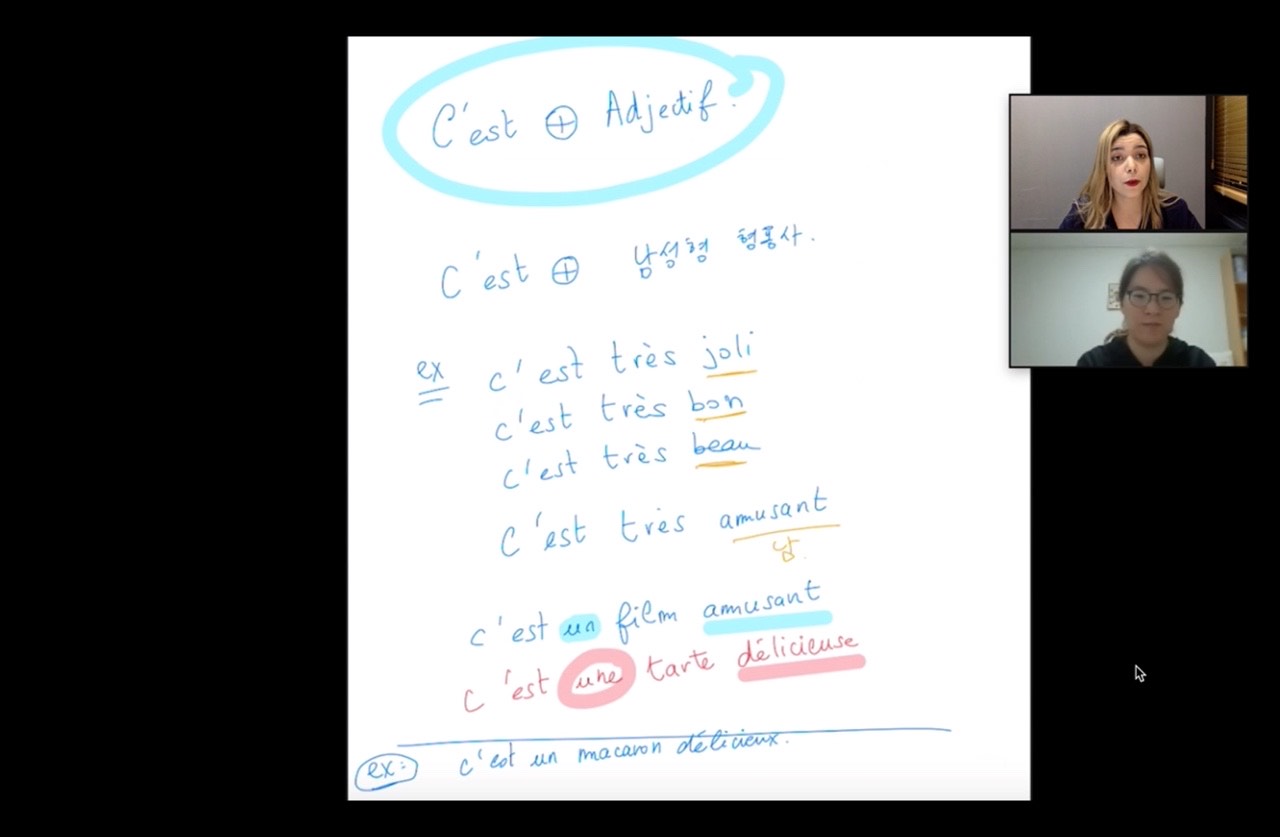 C'est ⊕ Adjectif.
C'est ⊕ 남성형 형용사.
ex c'est très joli
c'est très bon
c'est très beau
C'est très amusant
남.
c'est un film amusant
c'est une tarte délicieuse
ex: c'est un macaron délicieux.